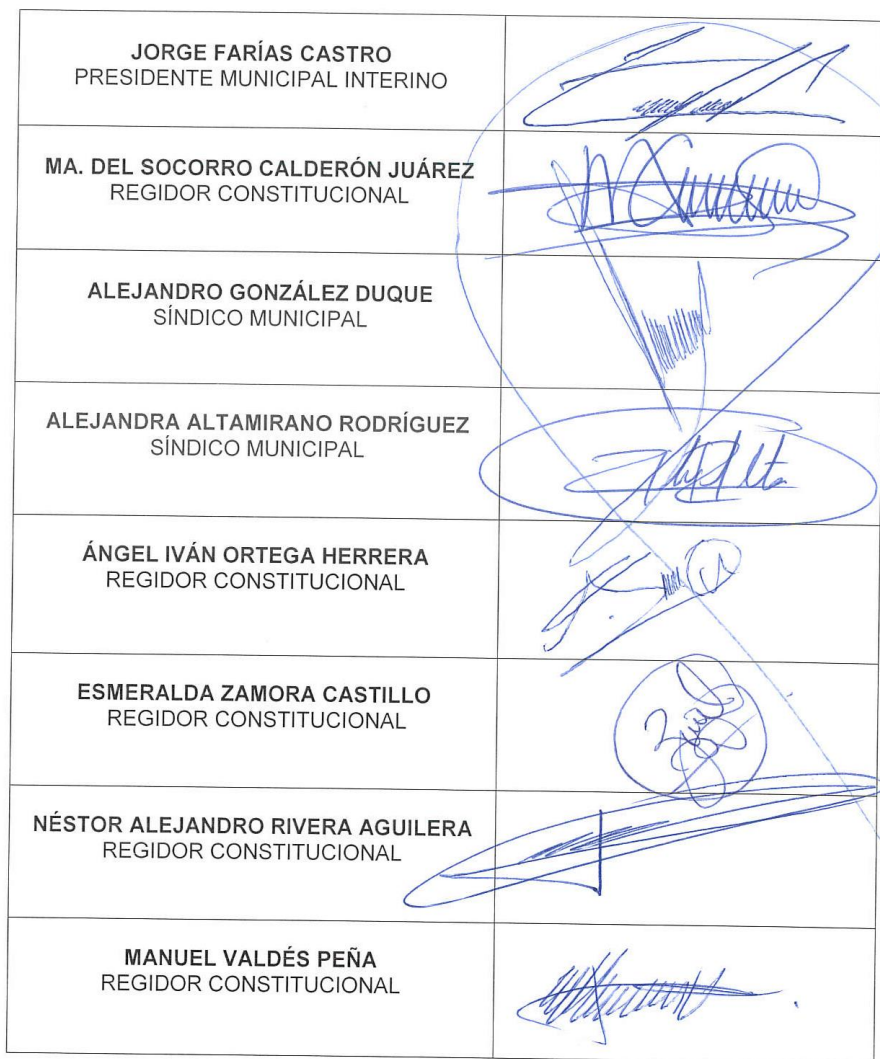 JORGE FARÍAS CASTRO
PRESIDENTE MUNICIPAL INTERINO
MA. DEL SOCORRO CALDERÓN JUÁREZ
REGIDOR CONSTITUCIONAL
ALEJANDRO GONZÁLEZ DUQUE
SÍNDICO MUNICIPAL
ALEJANDRA ALTAMIRANO RODRÍGUEZ
SÍNDICO MUNICIPAL
ÁNGEL IVÁN ORTEGA HERRERA
REGIDOR CONSTITUCIONAL
ESMERALDA ZAMORA CASTILLO
REGIDOR CONSTITUCIONAL
NÉSTOR ALEJANDRO RIVERA AGUILERA
REGIDOR CONSTITUCIONAL
MANUEL VALDÉS PEÑA
REGIDOR CONSTITUCIONAL